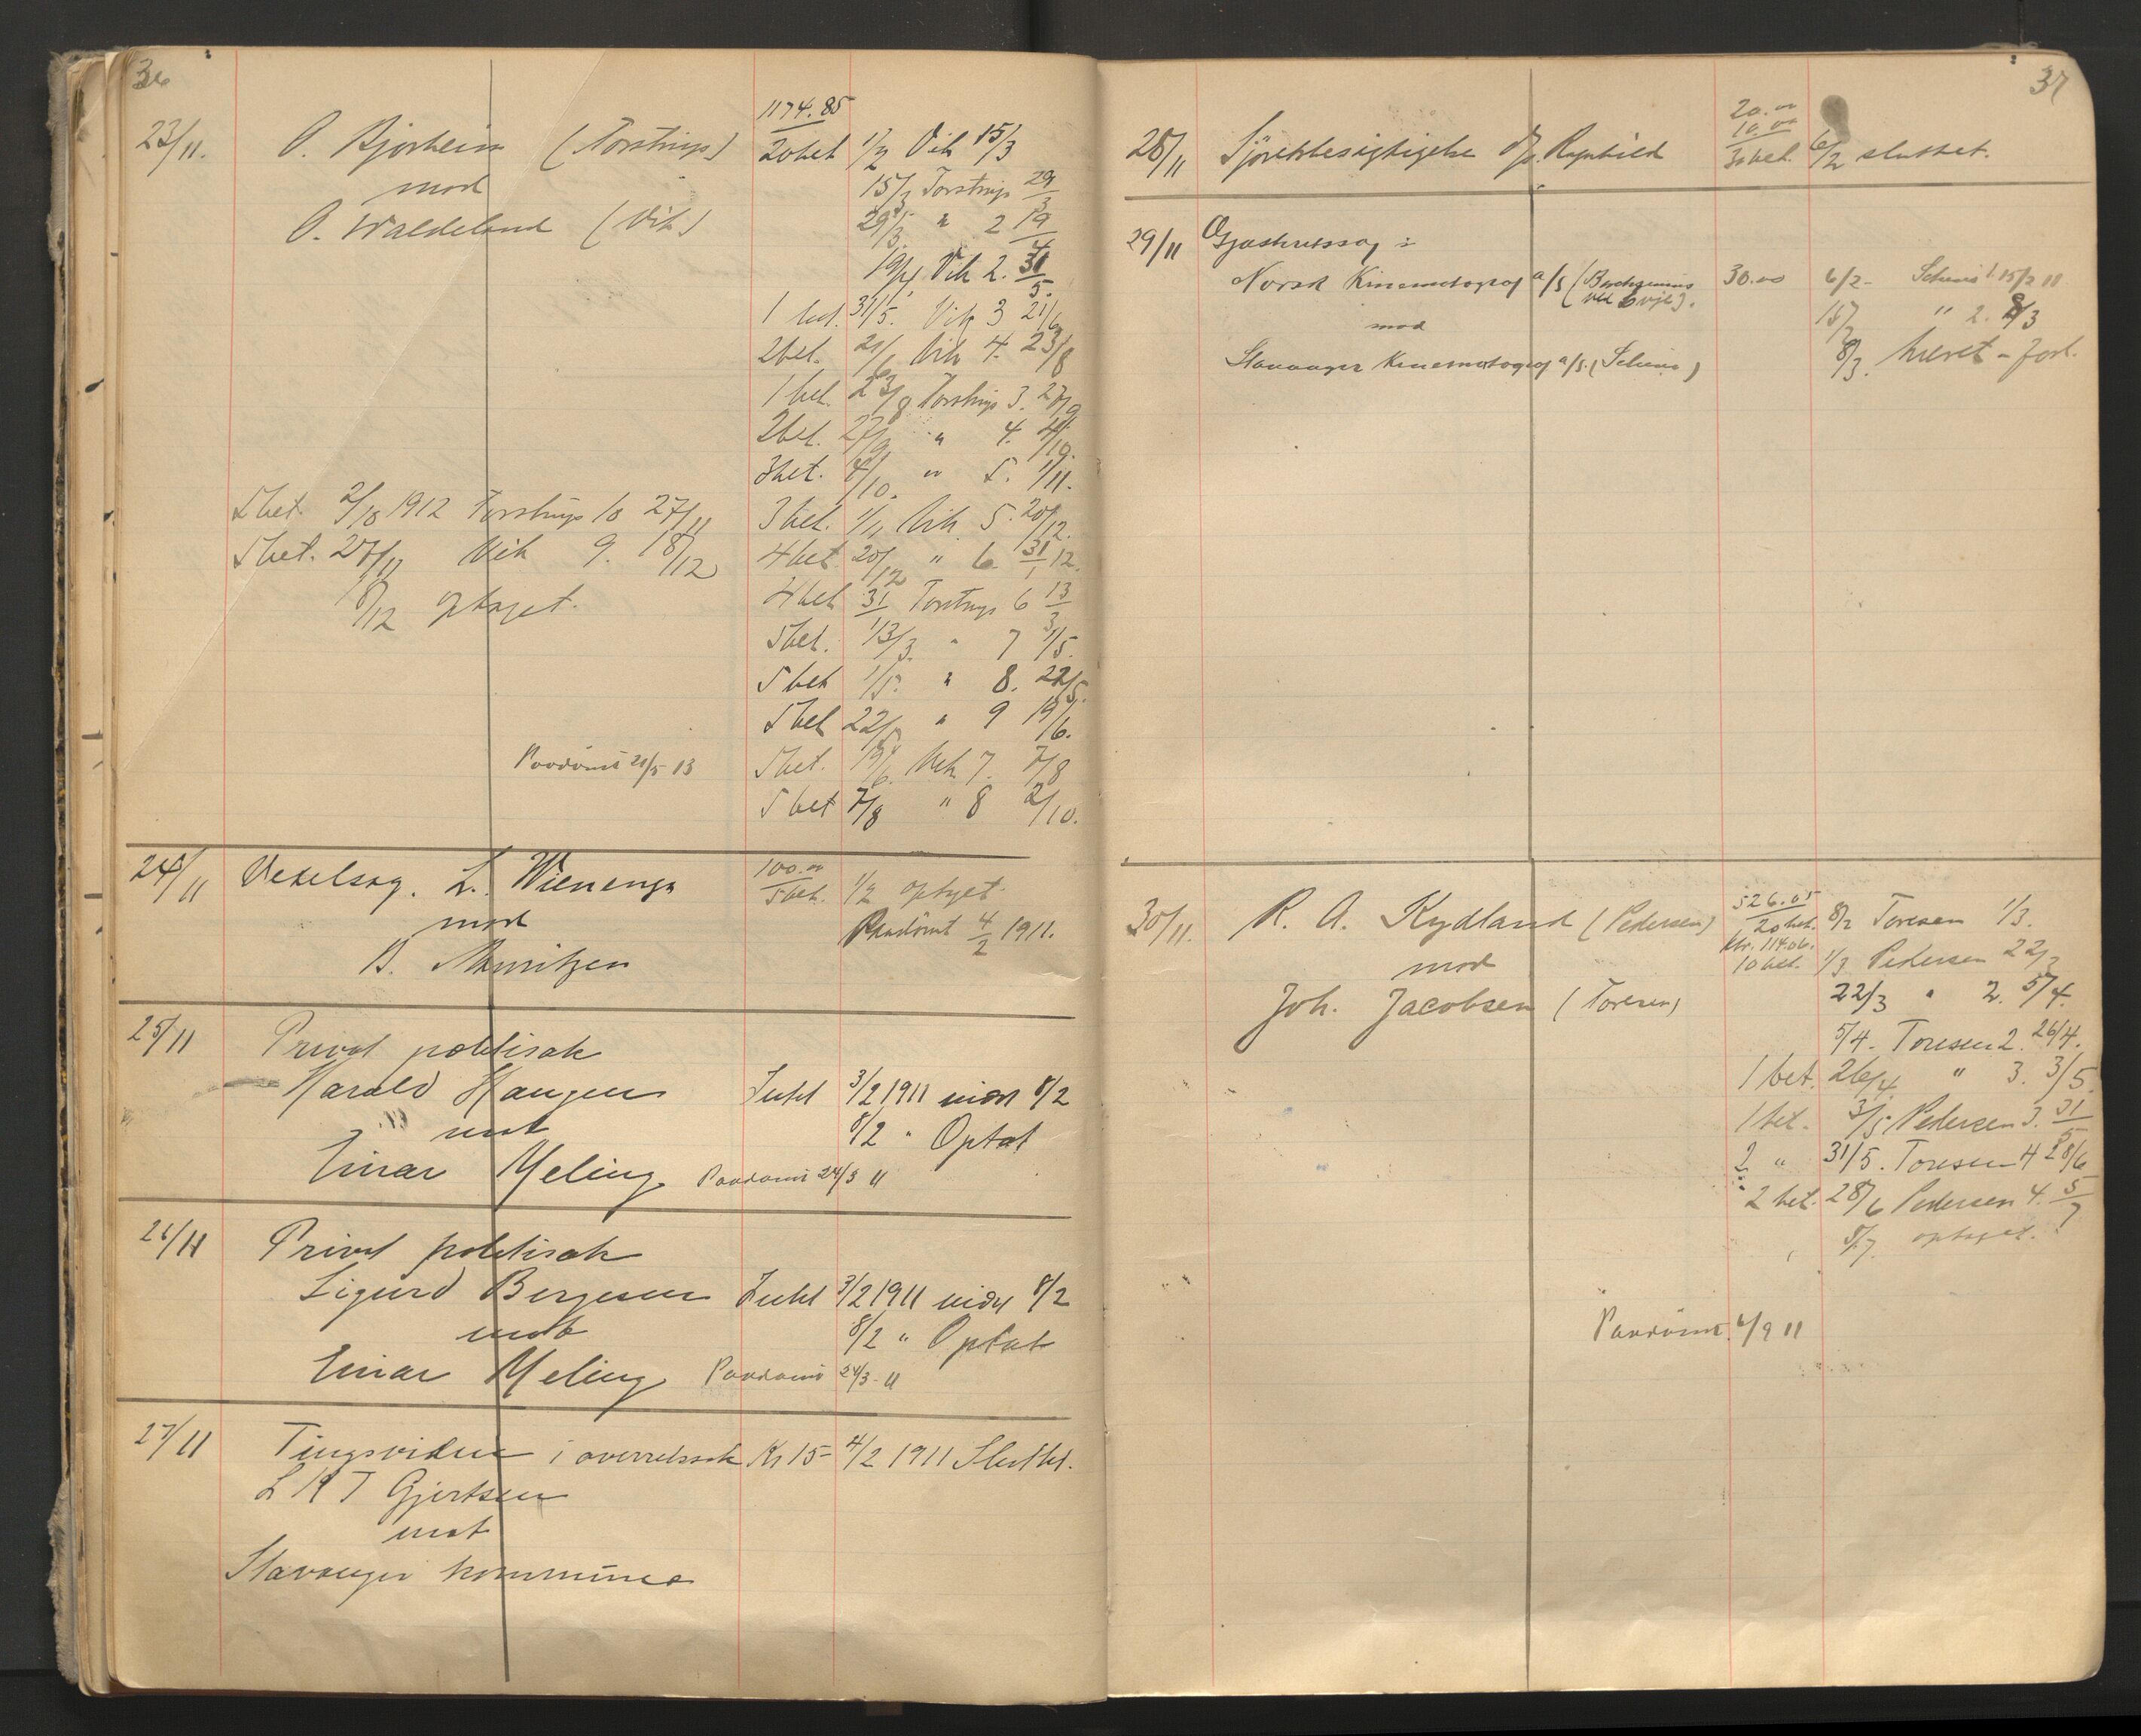 36
23/11. O. Bjorheim (Torstrup) 1174.85
20 bet 1/2 Vik 15/3
mod
15/3 Torstrup 29/3
O. Waldeland (Vik) 29/3 " 2 19/4
19/4 Vik 2. 31/5.
1 bet. 31/5. Vik 3 21/6
2 bet. 21/6 Vik 4. 23/8
1 bet. 23/8 Torstrup 3. 27/9
2 bet. 27/9 " 4. 4/10.
3 bet. 4/10. " 5. 1/11.
3 bet. 1/11 Vik 5. 20/12.
4 bet 20/12 " 6. 31/1 12.
4 bet 31/1 Torstrup 6 13/3
5 bet. 13/3. " 7 1/5.
5 bet 1/5. " 8. 22/5.
5 bet 22/5 " 9 19/6.
5 bet. 19/6. Vik 7. 7/8
5 bet 7/8 " 8 2/10.
5 bet. 2/10 1912 Torstrup 10 27/11
5 bet. 27/11 Vik 9. 18/12
18/12 optaget.
Paadömt 21/5 13
24/11 Vexelsag. L. Wienenga 100.00
5 bet. 1/2 optaget.
mod
Paadömt 4/2 1911.
B. Mauritzen
25/11 Privat politisak
Harald Haugen Indk 3/2 1911 8/2
mot 8/2 " Optat
Einar Meling Paadömt 24/3 11
26/11 Privat politisak
Sigurd Bergesen Indk 3/2 1911 8/2
mot 8/2 " Optat
Einar Meling Paadömt 24/3 - 11
27/11 Tingsvidne i overretssak Kr 15- 4/2 1911 Sluttet.
L K T Gjertsen
mot
Stavanger kommune
37
28/11 Sjöretsbesigtigelse D/S. Ragnhild 20.00
10.00
30 bet. 6/2 sluttet.
29/11 Gjesteretssag :
Norsk Kinematograf a/s (Borchgrevink 30.00 6/2- Scheie 1. 15/2 11
15/2 " 2. 8/3
mod
Stavanger Kinematograf a/s. (Scheie) 8/3. hævet - forl.
30/11. R. A. Kydland (Pedersen) 526.05
20 bet. 8/2 Toresen 1/3.
Kr. 114.06.
mod 10 bet. 1/3 Pedersen 22/3
Joh. Jacobsen (Toresen) 22/3 " 2. 5/4.
5/4. Toresen 2. 26/4.
1 bet. 26/4 " 3. 3/5.
1 bet. 3/5 Pedersen 3. 31/5
2 " 31/5. Toresen 4 28/6
2 bet. 28/6 Pedersen 4. 5/7
5/7. optaget.
Paadömt. 6/9 11